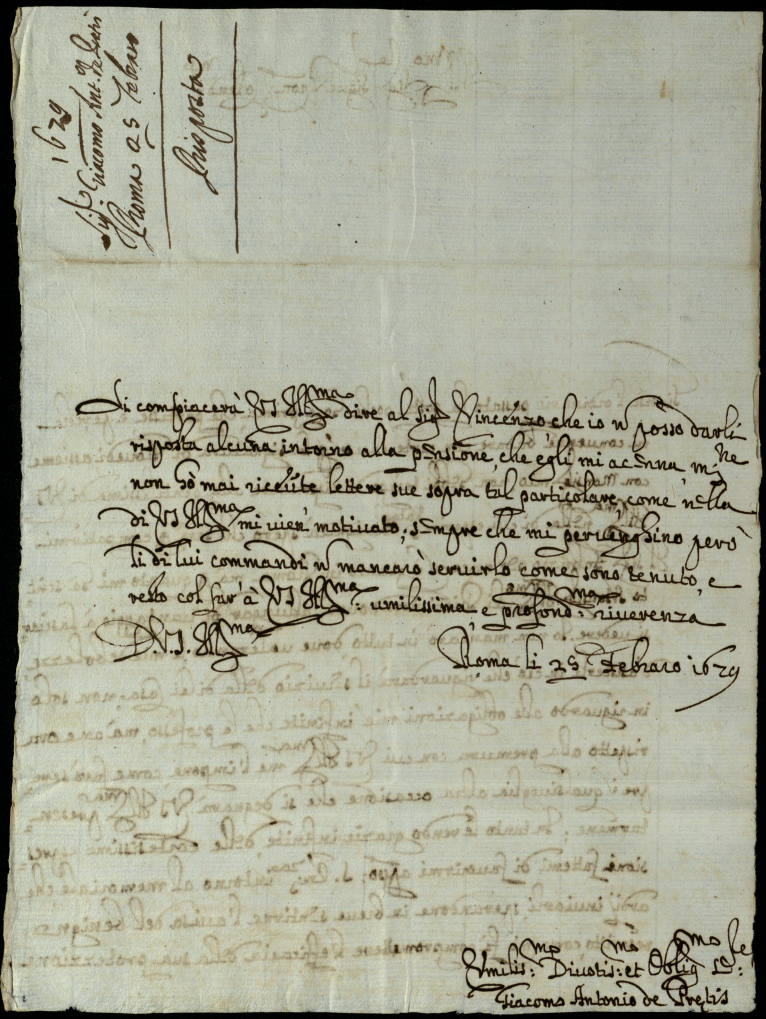 1629
Sigr Giacomo Ant.
Roma 25 febraro
Risposta
Si compiacerà VS Illma dire al Sigr Vincenzo che io n posso darli
risposta alcuna intorno alla pensione, che egli mi acenna
non hò mai riceuute lettere sue sopra tal particolare, come nella
di VS Illma mi vien motiuato, sempre che mi peruenghino però
li di lui commandi n mancarò seruirlo come sono tenuto, e
resto col far à VS Illma: umilissima, e profondma: riuerenza
D.V.S. Illma
Roma li 25 Febraro 1629
Vmilismo: Diuotismo: et Obligmo Sre:
Giacomo Antonio de Pretis